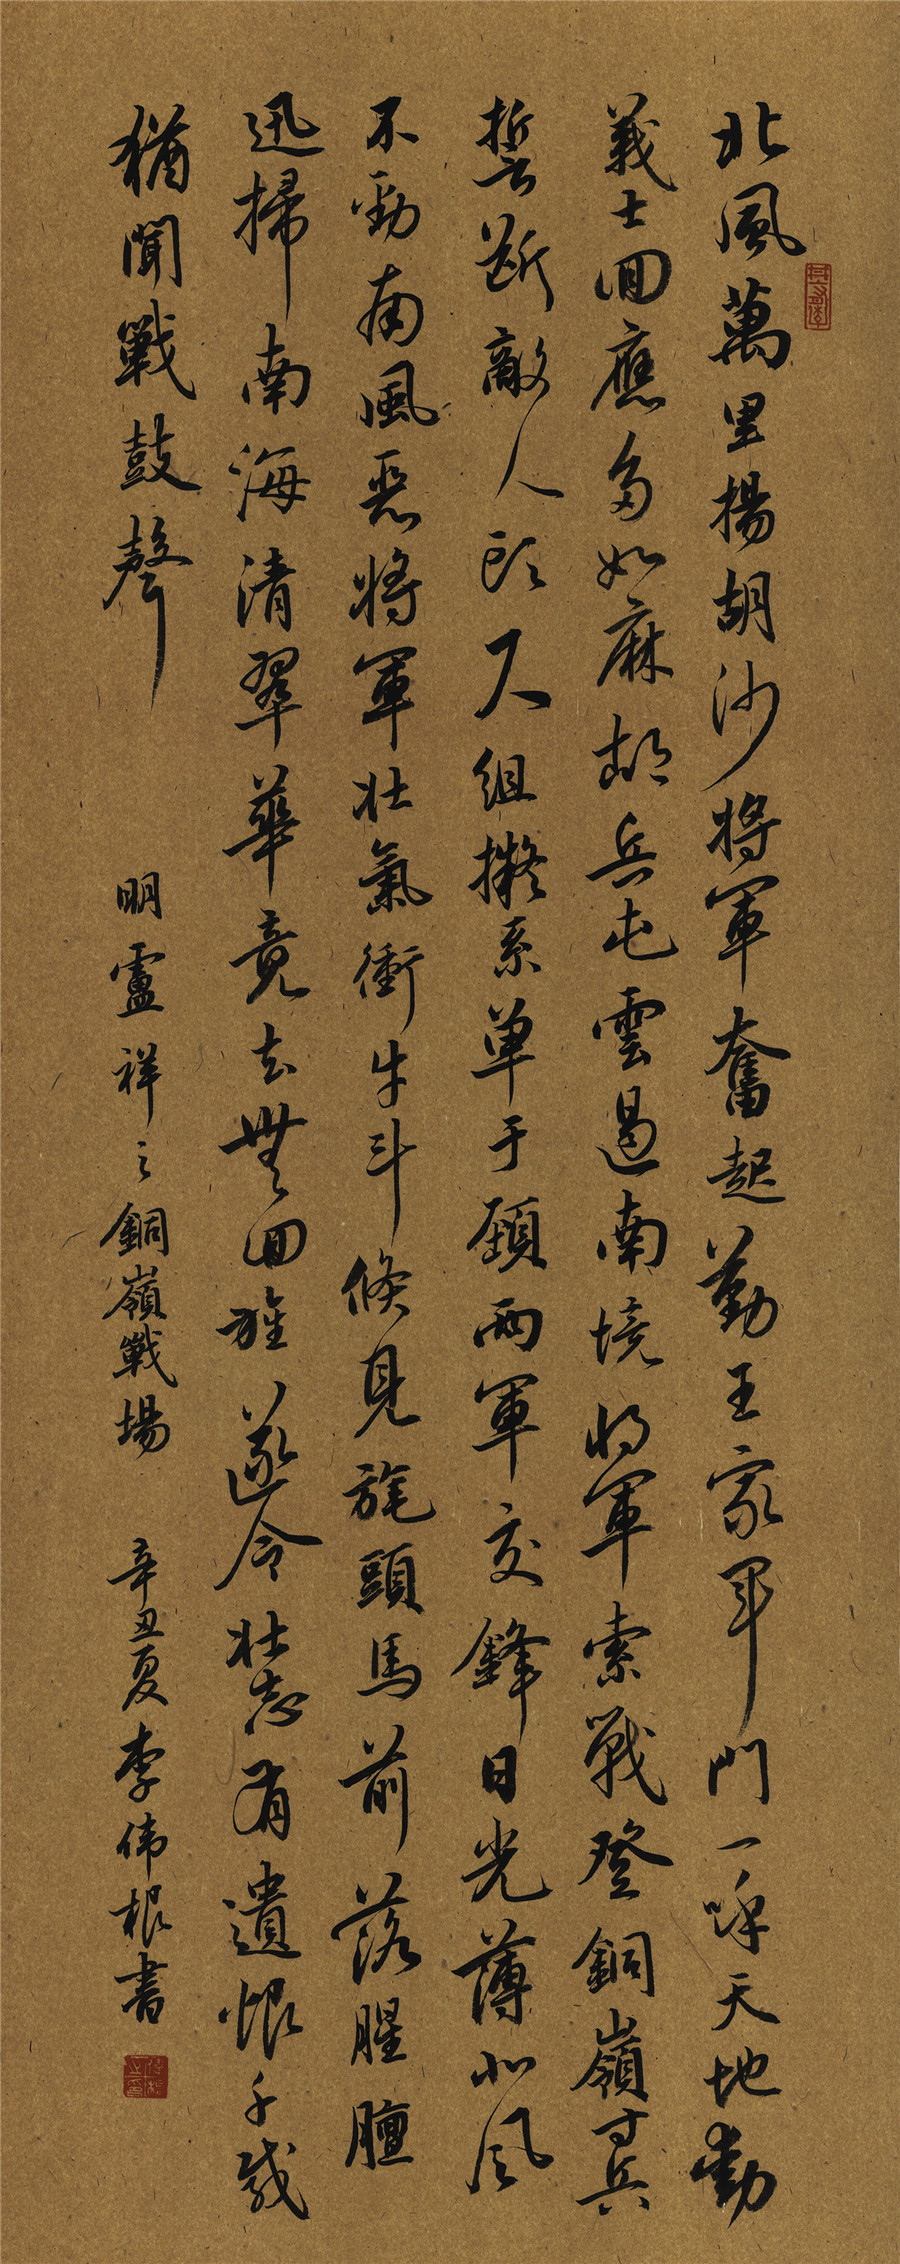 北風萬里揚胡沙將軍奮起勤王家軍門一呼天地動
義士回應多如麻胡兵屯雲逼南境將軍索戰登銅嶺寸兵
誓斷敵人頭尺組擬系單于頸兩軍交鋒日光薄北風
不勁南風惡將軍壯氣衝牛斗倏見旄頭馬前落腥膻
迅掃南海清翠華竟去無回旌遂令壯志有遺恨千載
猶聞戰鼓聲
明盧祥之銅嶺戰場
辛丑夏李伟根書